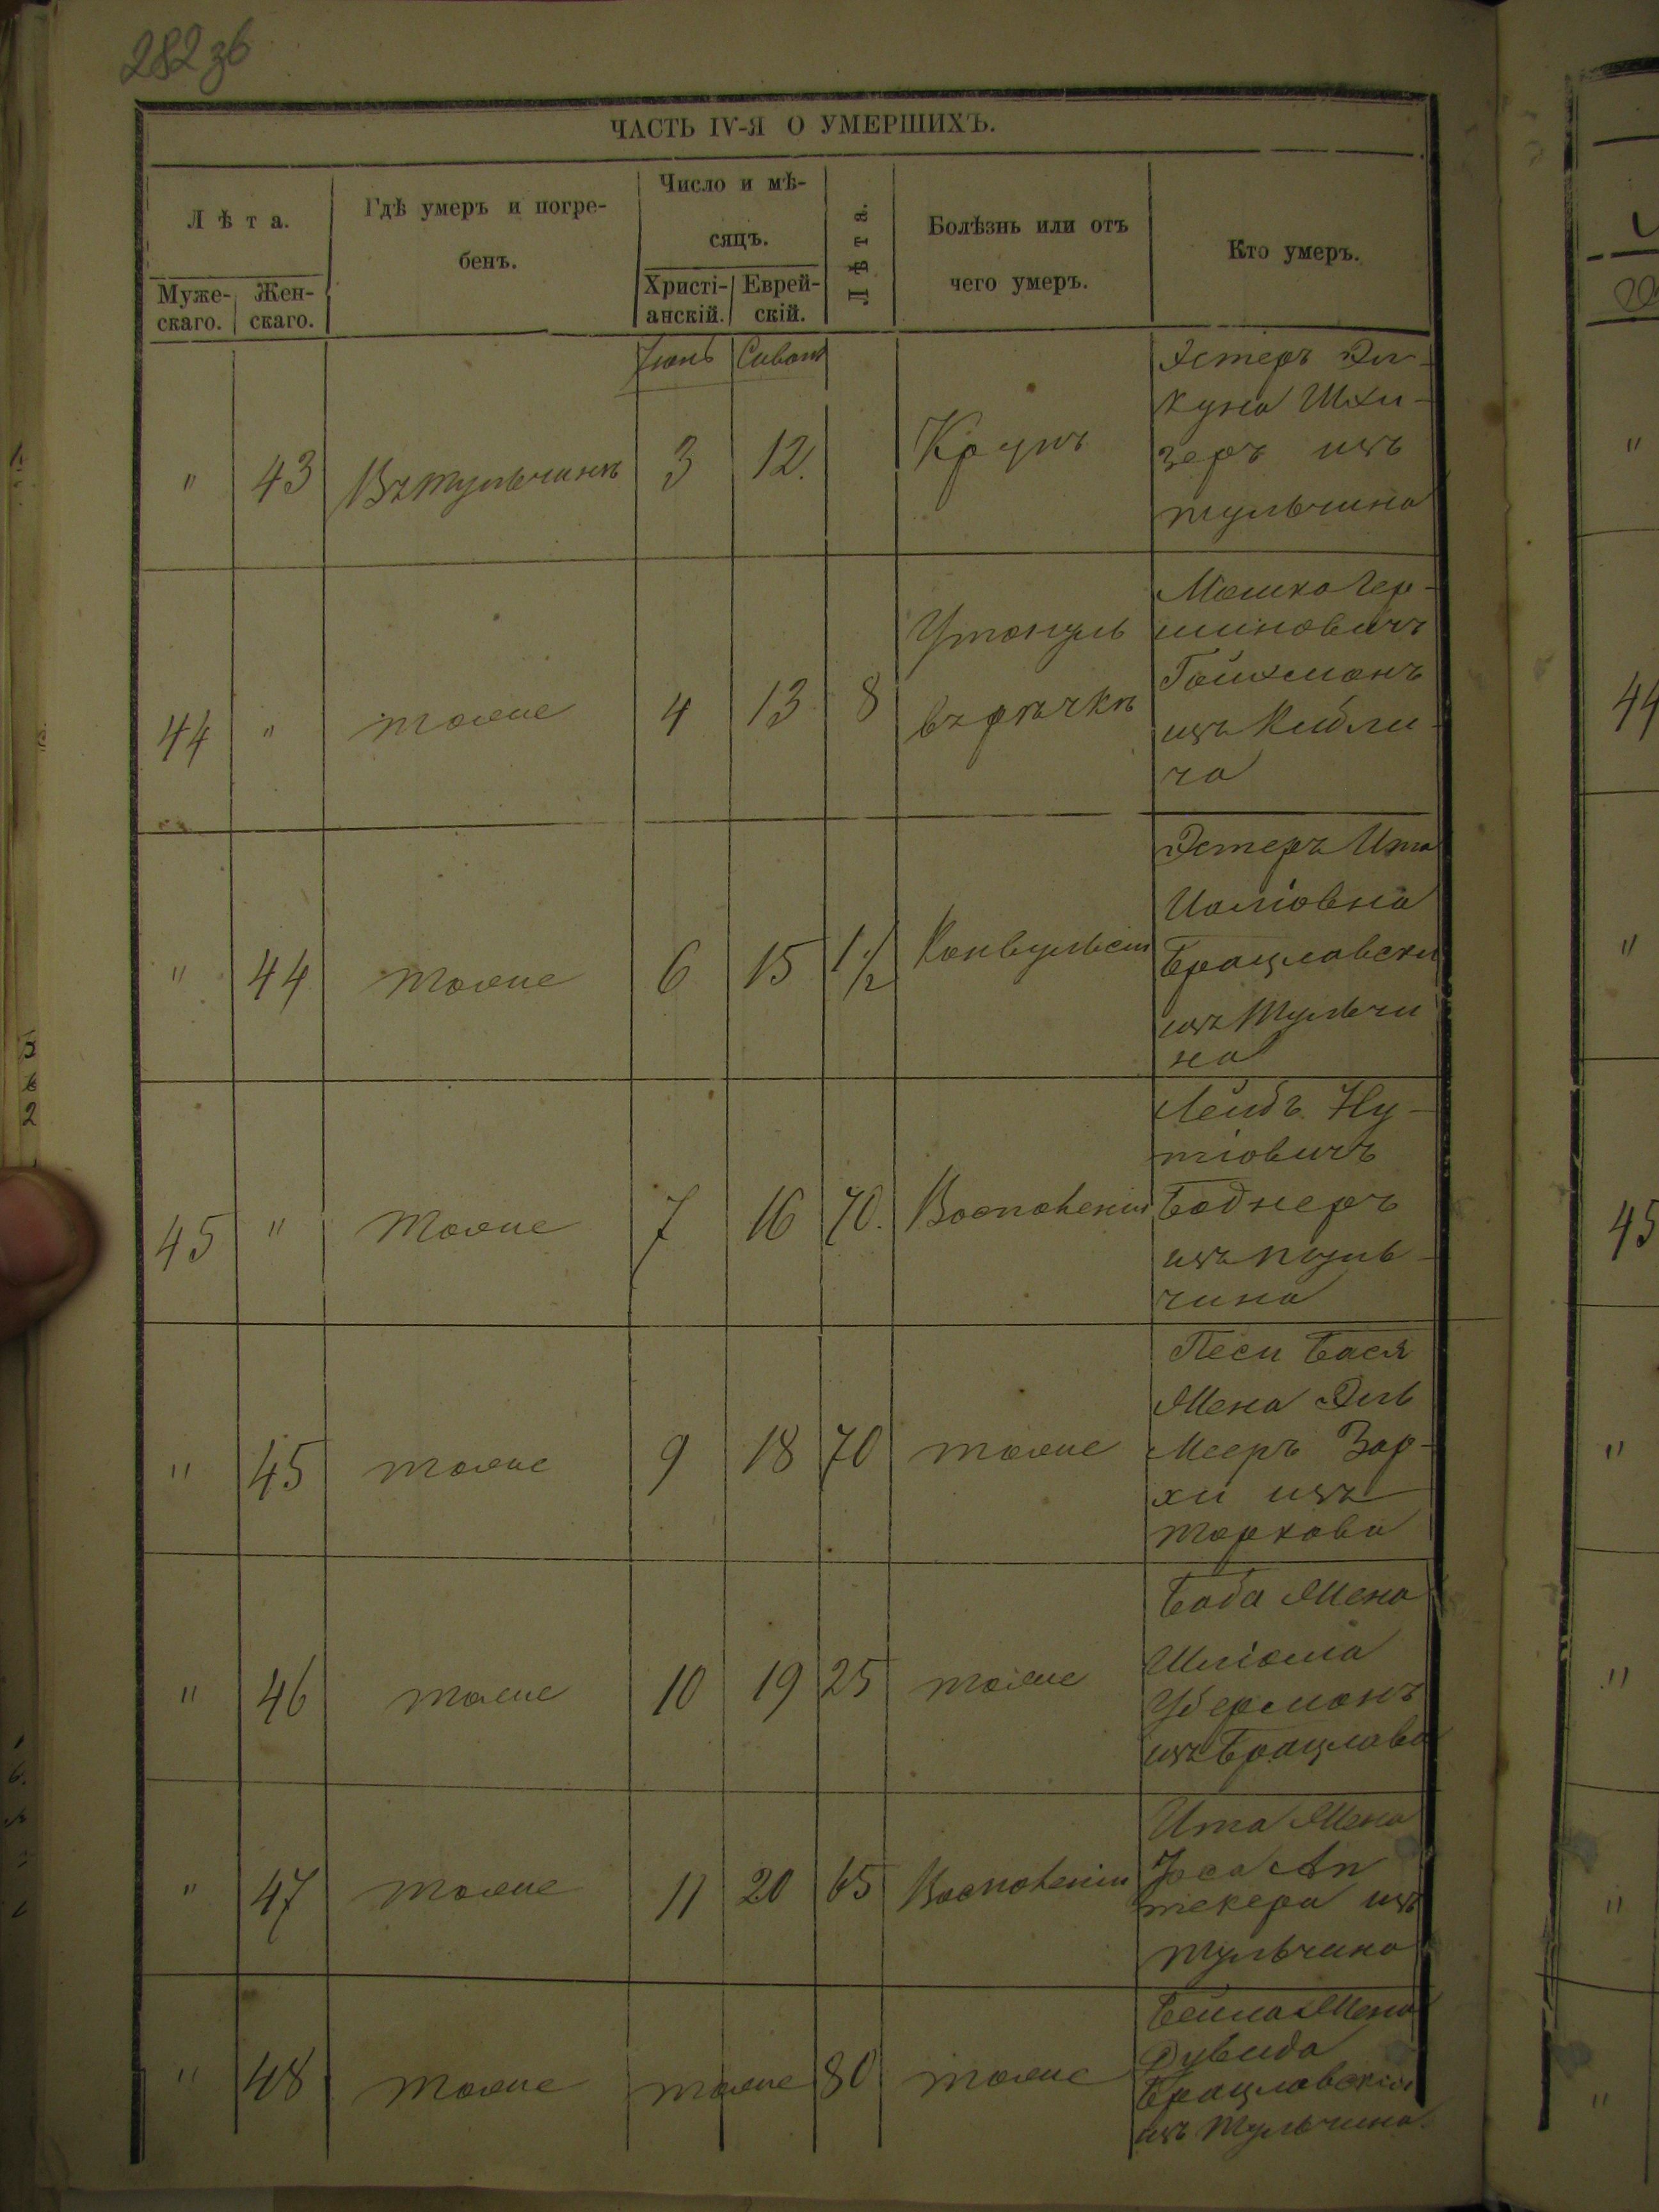 282 зв
ЧАСТЬ IV-Я О УМЕРШИХЪ.
Лѣта.
Муже-
скаго.
Жен-
скаго.
Гдѣ умеръ и погре-
бенъ.
Число и мѣ-
сяцъ.
Христі-
анскій.
Еврей-
скій.
Лѣта.
Болѣзнь или отъ
чего умеръ.
Кто умеръ.
Іюнь Сивонъ
" 43 Въ тульчинѣ 3 12. Крупъ
Эстеръ
зеръ изъ
тульчина
44 " тоже 4 13 8 Утонулъ
въ рѣчкѣ
Мошко Гер-
шиновичъ
Гойхманъ
изъ Кибли-
ча
" 44 тоже 6 15 1 1/2 Конвульсіи
Эстеръ Ита
Брацлавски
изъ Тульчи
на
45 " Тоже 7 16 70. Воспаленіи
Лейбъ Ну-
тіовичъ
Боднеръ
изъ туль-
чина
" 45 тоже 9 18 70 тоже
Песи Бася
Жена Эль
Мееръ Зар-
хи изъ
торкова
" 46 тоже 10 19 25 тоже
Баба Жена
Шліома
Уберманъ
изъ Брацлава
" 47 тоже 11 20 65 Воспаленіи
Ита Жена
Іоса Ап
текера изъ
тульчина
" 48 тоже тоже 80 тоже
Бейла Жена
Дувида
Брацлавскій
изъ Тульчина.
44
45